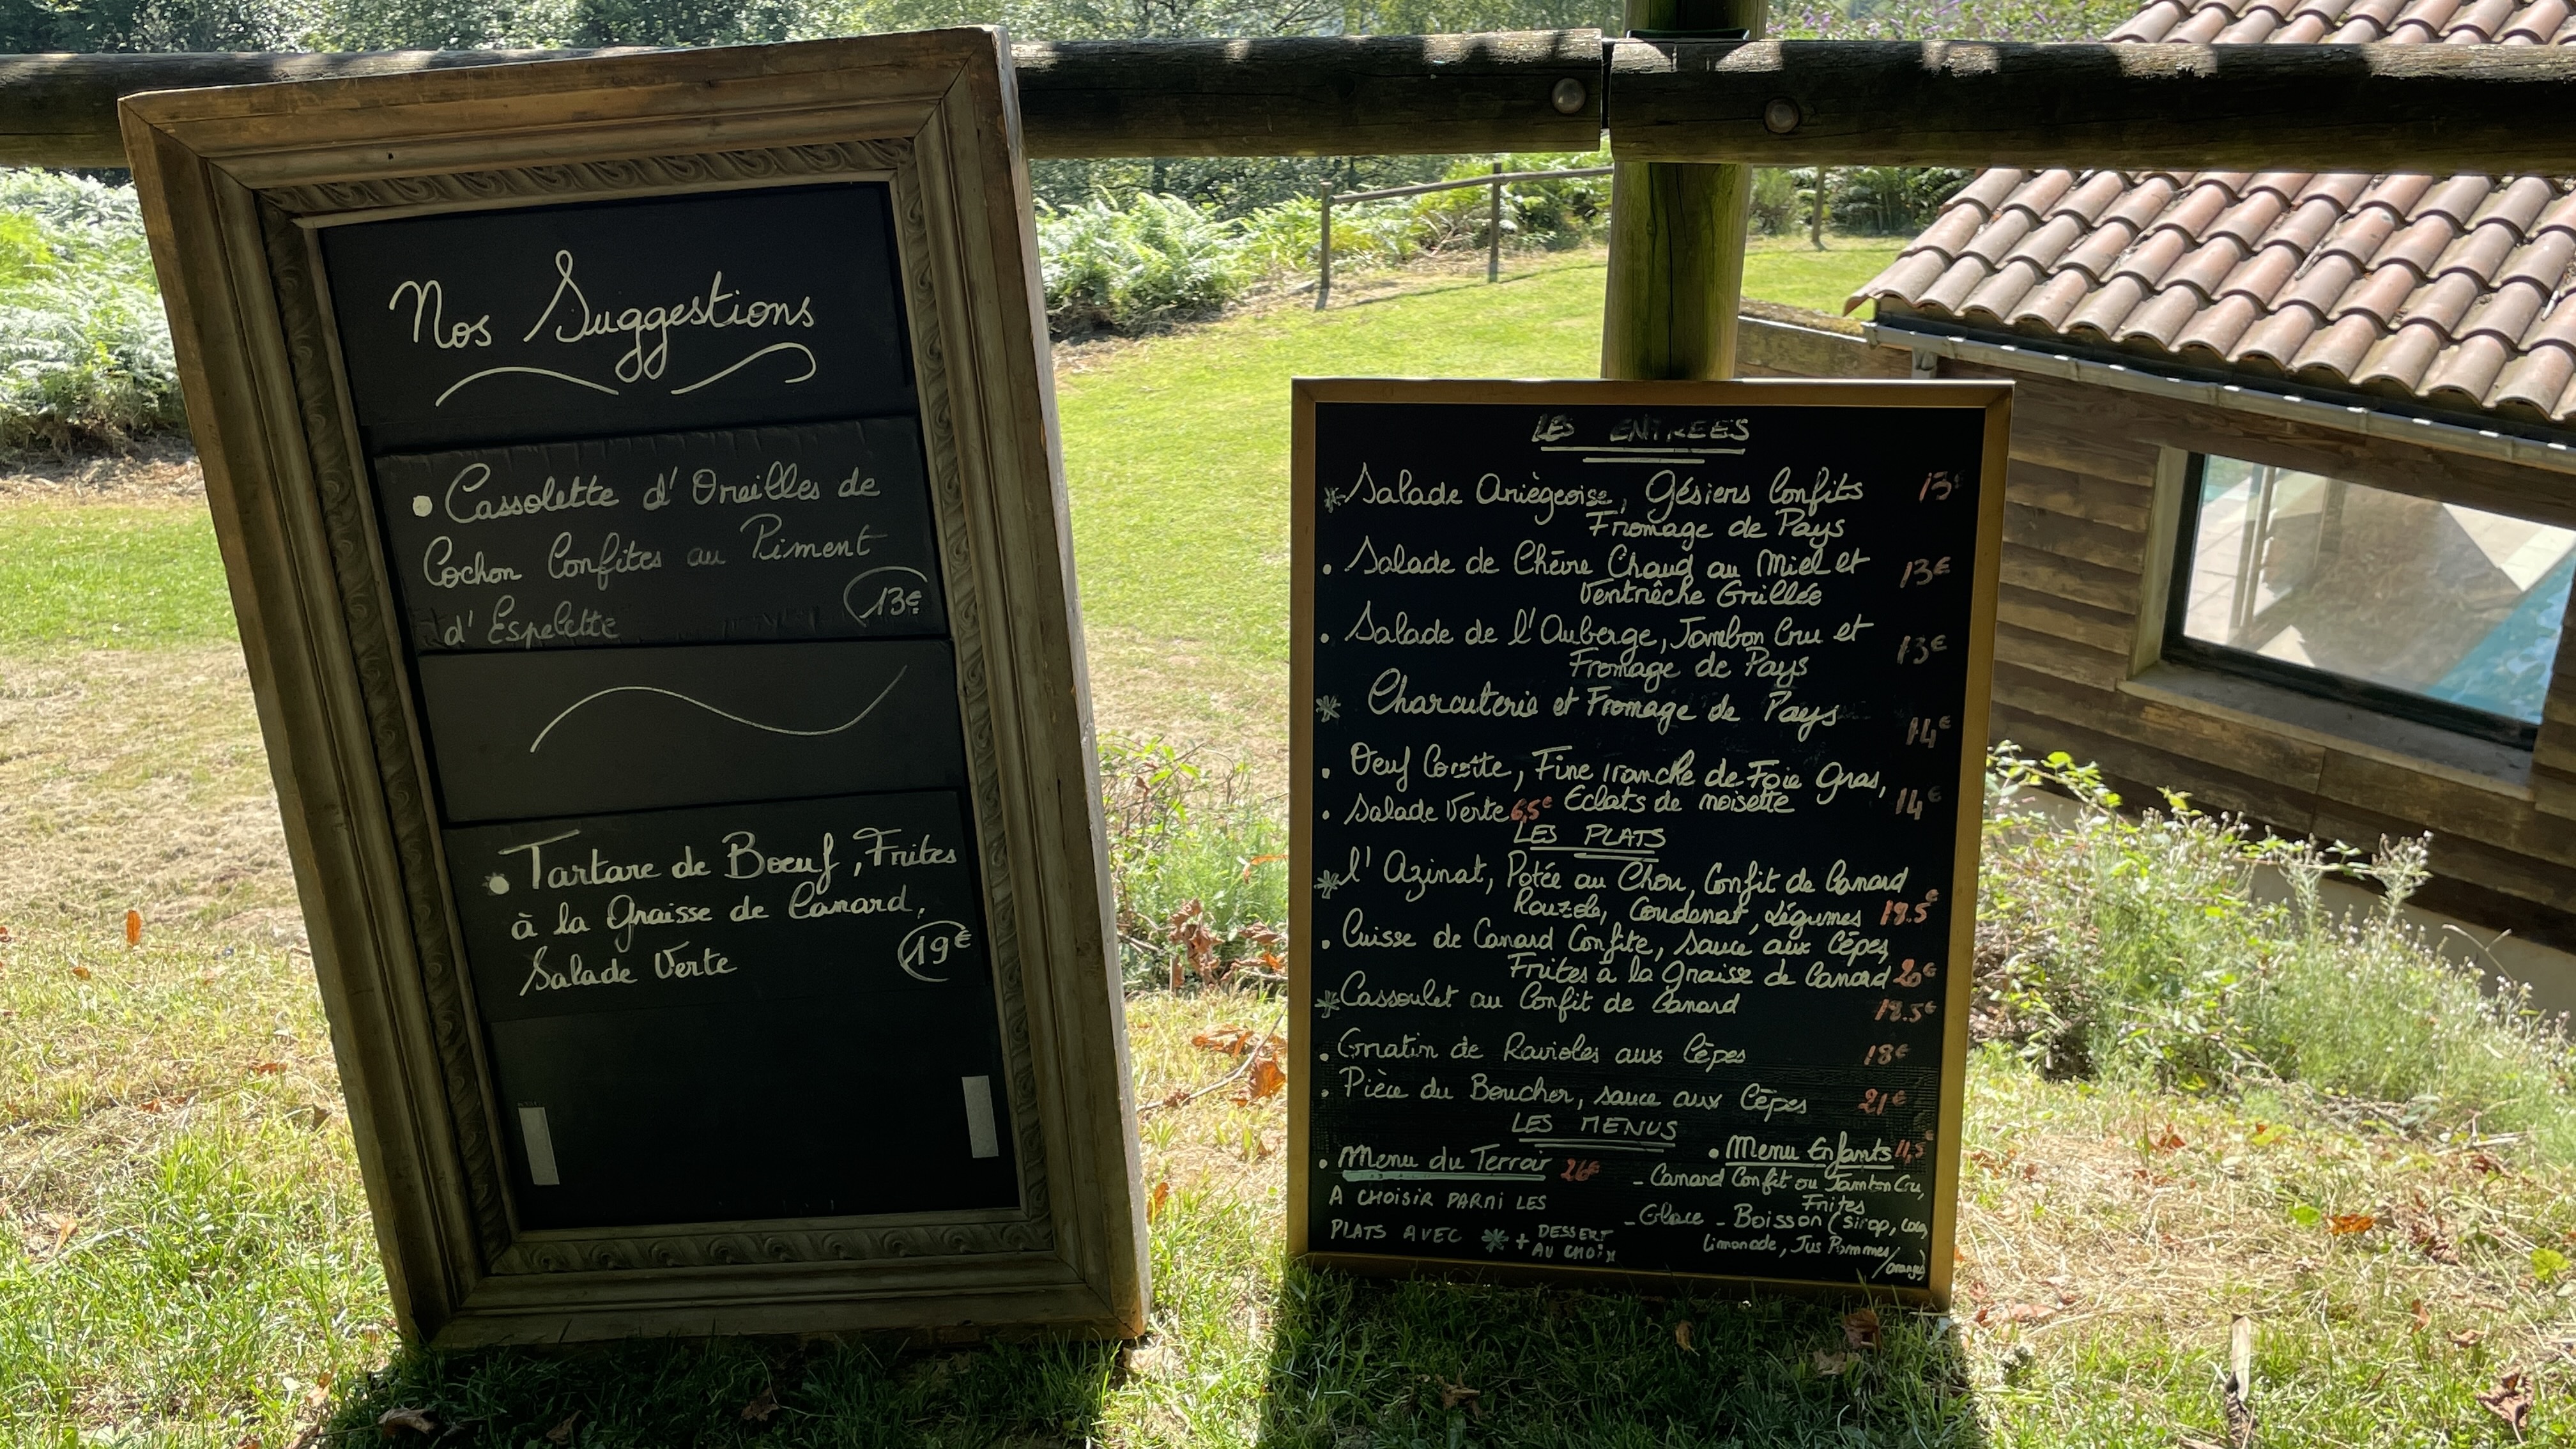 Nos Suggestions
Cassolette d'Oreilles de
Cochon Confites au Piment
d'Espelette 13€
Tartare de Boeuf, Frites
à la Graisse de Canard,
Salade Verte 19€
LES ENTREES
* Salade Ariègeoise, Gésiers Confits 13€
Fromage de Pays
• Salade de Chèvre Chaud au Miel et 13€
Ventrêche Grillée
• Salade de l'Auberge, Jambon Cru et 13€
Fromage de Pays
* Charcuterie et Fromage de Pays 14€
• Oeuf Cocotte, Fine Tranche de Foie Gras,
Eclats de noisette 14€
• Salade Verte 6,5€
LES PLATS
* l'Azinat, Potée au Chou, Confit de Canard
Rouzole, Coudenat, Légumes
• Cuisse de Canard Confite, sauce aux Cèpes,
Frites à la Graisse de Canard 20€
* Cassoulet au Confit de Canard
• Gratin de Ravioles aux Cèpes 18€
• Pièce du Boucher, sauce aux Cèpes 21€
LES MENUS
• Menu du Terroir 26€
A CHOISIR PARMI LES
PLATS AVEC * + DESSERT
AU CHOIX
• Menu Enfants 11,5€
- Canard Confit ou Jambon Cru,
Frites
- Glace - Boisson (sirop, coca,
limonade, Jus Pommes/
oranges)